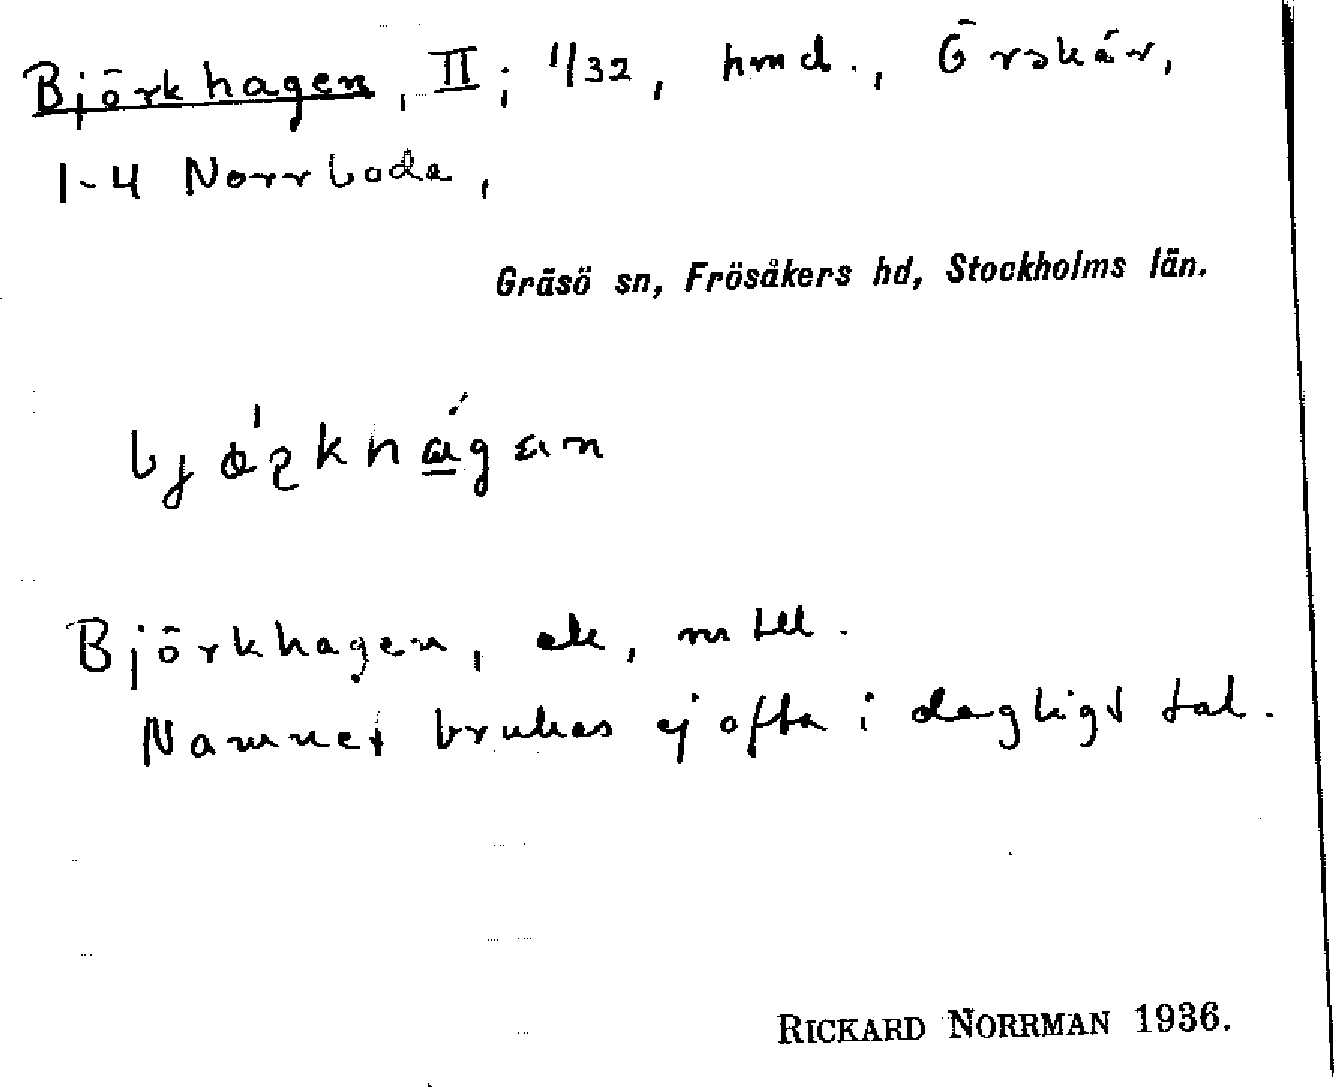 Björkhagen, II; 1/32, hmd., Örskär,
1-4 Norrboda,
Gräsö sn, Frösåkers hd, Stockholms län.
Björkhagen, ek, m till.
Namnet brukas ej ofta i dagligt tal.
RICKARD NORRMAN 1936.